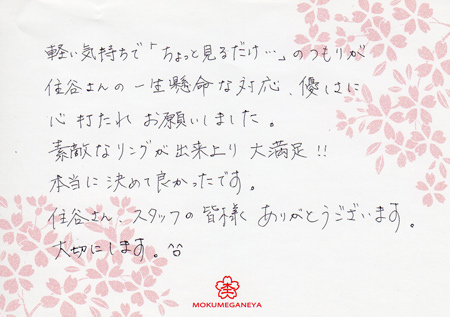 軽い気持ちで「ちょっと見るだけ…」のつもりが
住谷さんの一生懸命な対応、優しさに
心打たれお願いしました。
素敵なリングが出来上り大満足!!
本当に決めて良かったです。
住谷さん、スタッフの皆様、ありがとうございます。
大切にします。^^
MOKUMEGANEYA